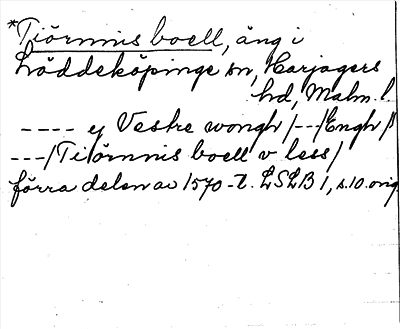 *Tiörnnis boell, äng i
Löddeköpinge sn, Harjagers
hd, Malm. l.
---- ej Vestre wongh/--/Engh/
---/Tiörnnis boell v less/
förra delen av 1570-t. LSLB 1, s. 10. orig.